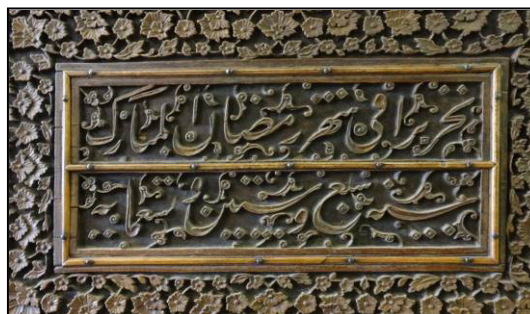 تحریرا فی شهر رمضان المبارک
سنه سبع و ستین و تسعمایه